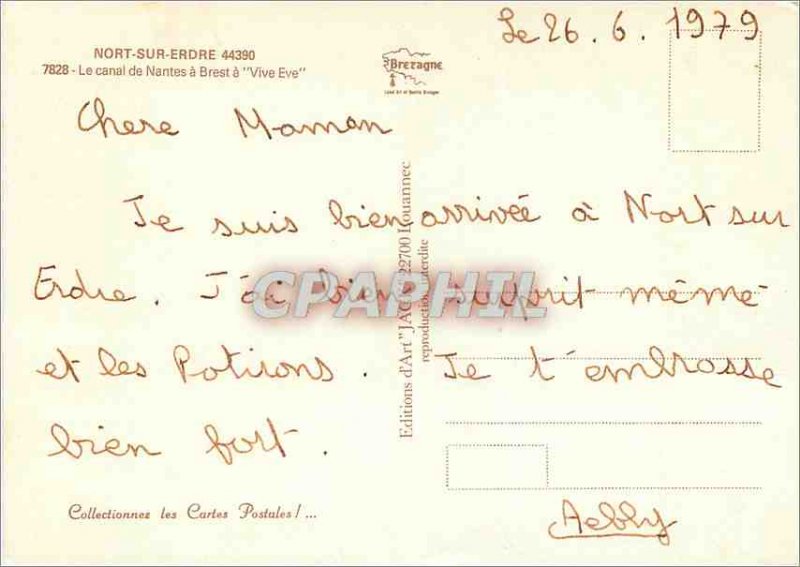 Le 26.6.1979
NORT-SUR-ERDRE 44390
7828 - Le canal de Nantes à Brest à "Vive Eve"
Bretagne
Chere Maman
Je suis bien arrivée à Nort sur
Erdre. J'ai bien surprit mémé
et les Potirons. Je t'embrasse
bien fort.
Aebly
Editions d'Art "JACK" 22700 Louannec
reproduction interdite
CPAPHIL
Collectionnez les Cartes Postales !...